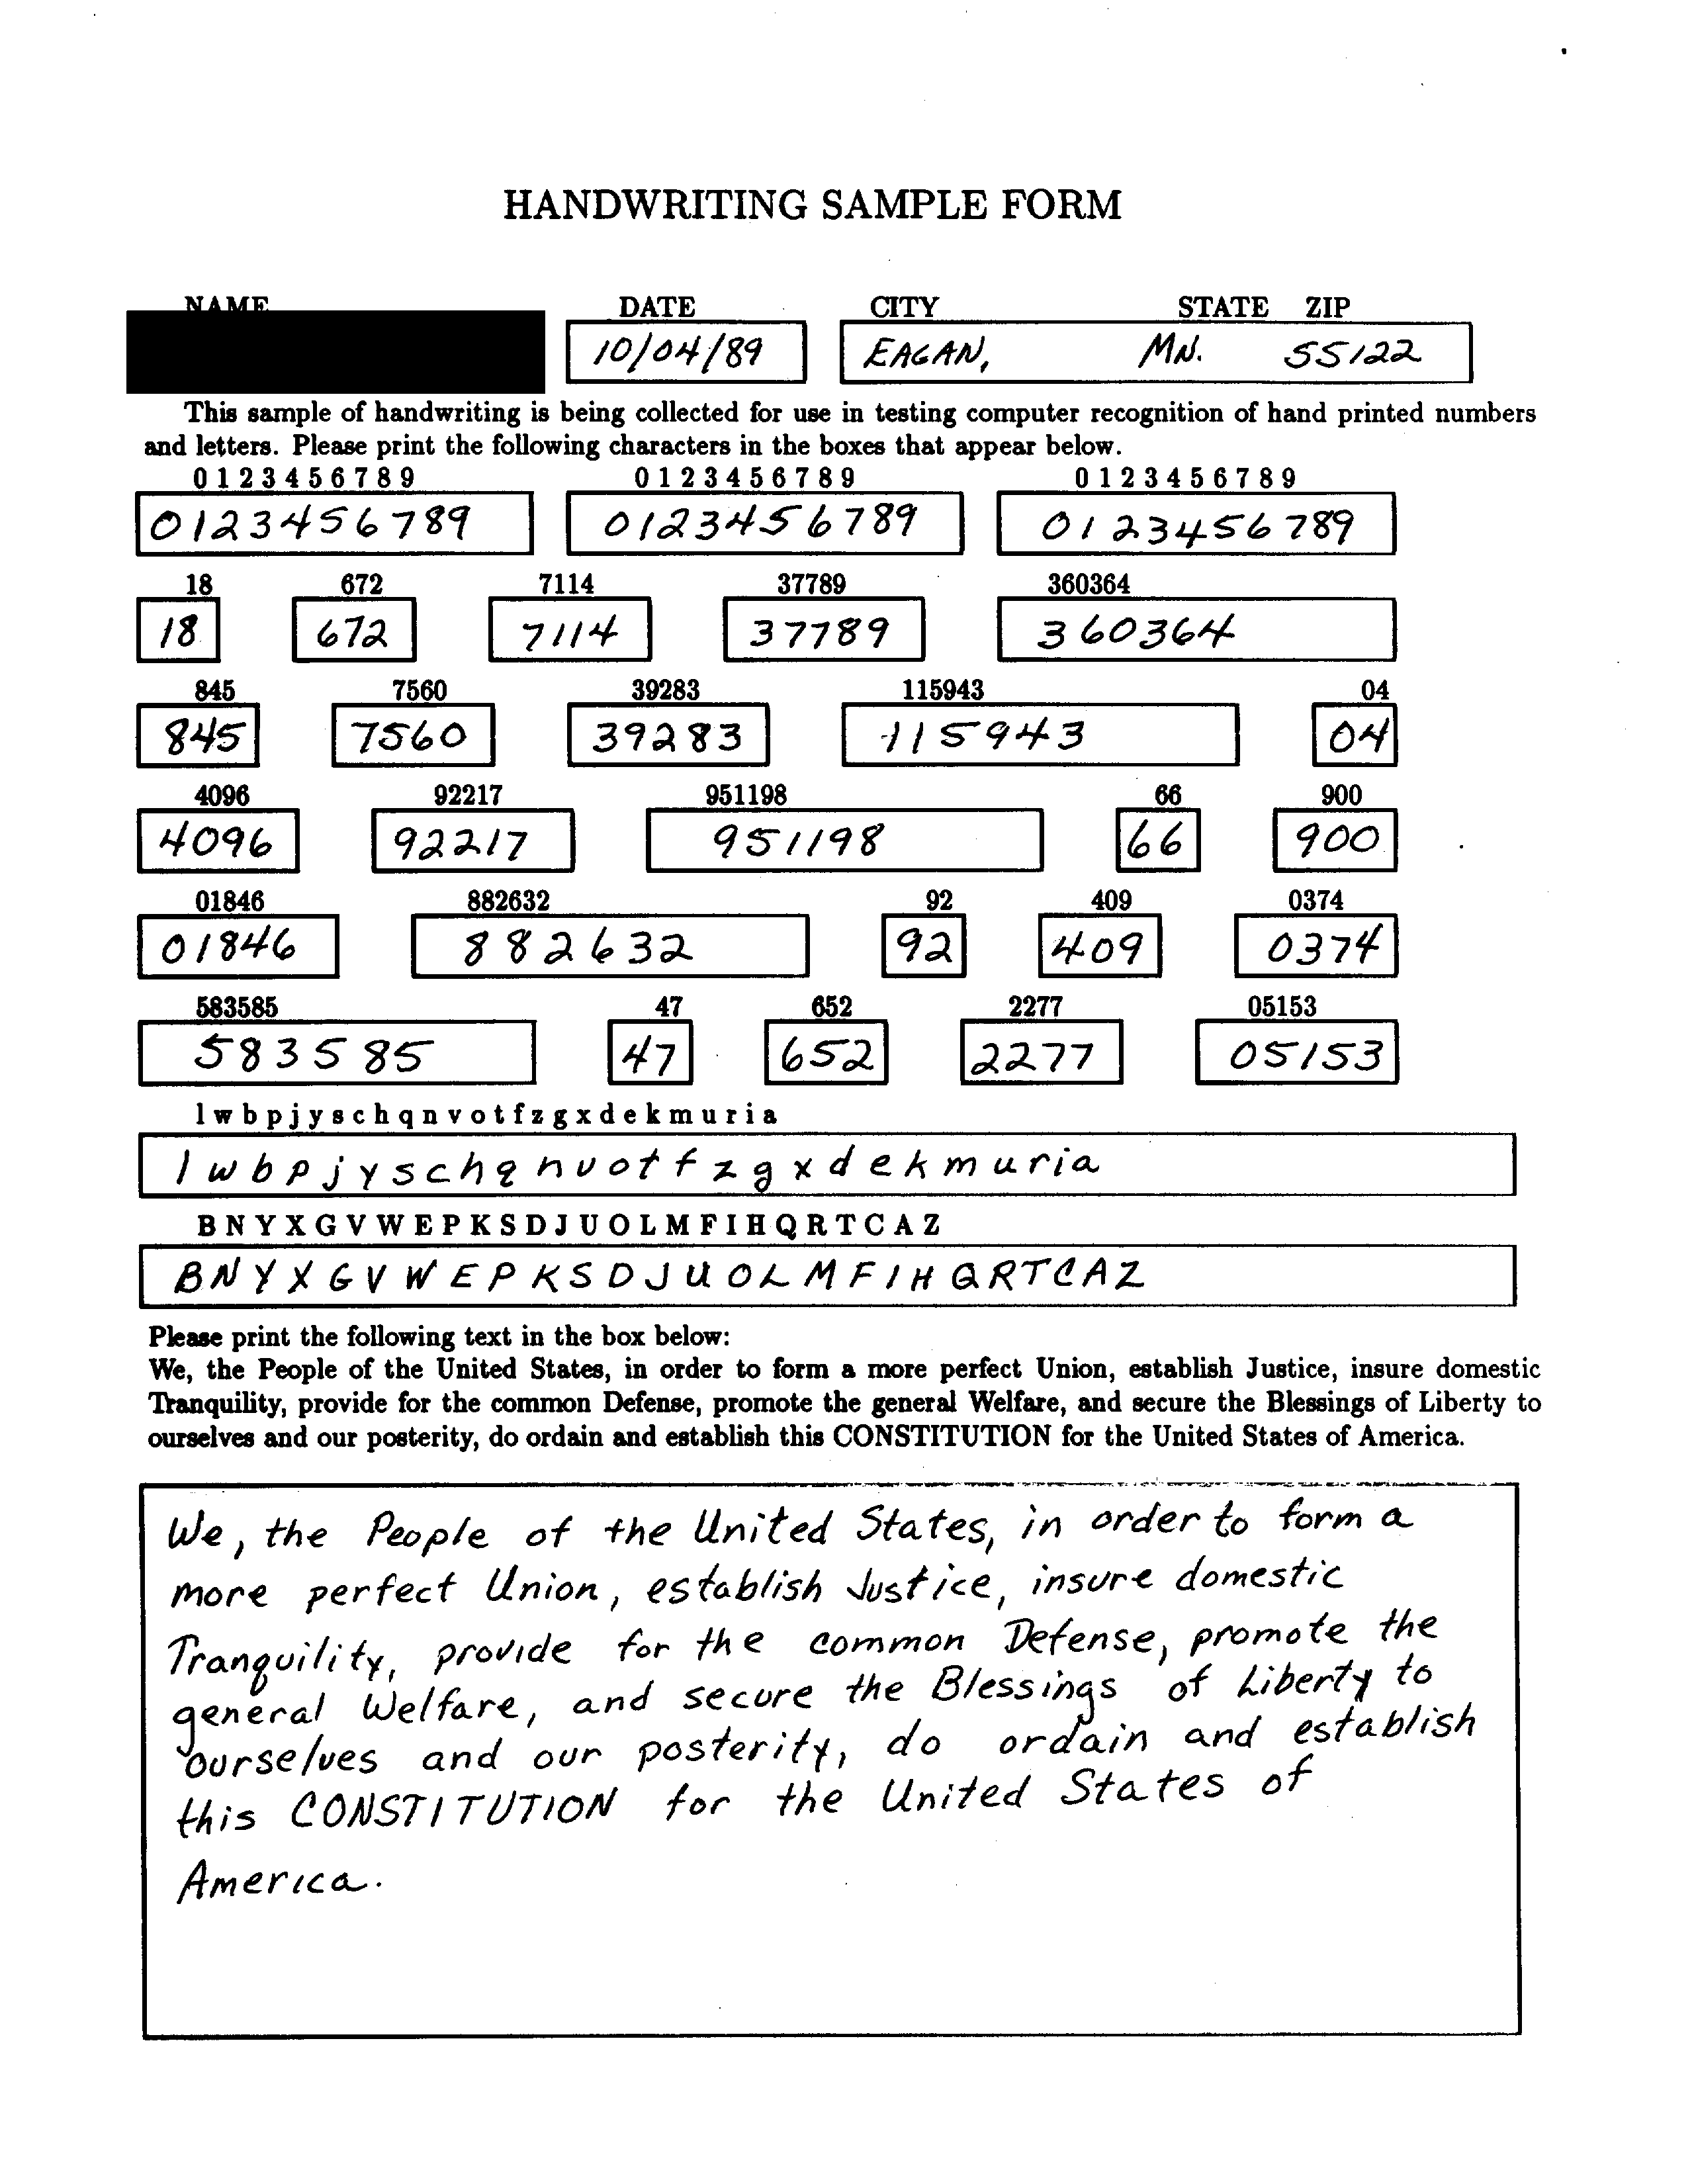 HANDWRITING SAMPLE FORM
NAME DATE CITY STATE ZIP
10/04/89 EAGAN, MN. 55122
This sample of handwriting is being collected for use in testing computer recognition of hand printed numbers
and letters. Please print the following characters in the boxes that appear below.
0 1 2 3 4 5 6 7 8 9 0 1 2 3 4 5 6 7 8 9 0 1 2 3 4 5 6 7 8 9
0123456789 0123456789 0123456789
18 672 7114 37789 360364
18 672 7114 37789 360364
845 7560 39283 115943 04
845 7560 39283 115943 04
4096 92217 951198 66 900
4096 92217 951198 66 900
01846 882632 92 409 0374
01846 882632 92 409 0374
583585 47 652 2277 05153
583585 47 652 2277 05153
l w b p j y s c h q n v o t f z g x d e k m u r i a
l w b p j y s c h q n v o t f z g x d e k m u r i a
B N Y X G V W E P K S D J U O L M F I H Q R T C A Z
B N Y X G V W E P K S D J U O L M F I H Q R T C A Z
Please print the following text in the box below:
We, the People of the United States, in order to form a more perfect Union, establish Justice, insure domestic
Tranquility, provide for the common Defense, promote the general Welfare, and secure the Blessings of Liberty to
ourselves and our posterity, do ordain and establish this CONSTITUTION for the United States of America.
We, the People of the United States, in order to form a
more perfect Union, establish Justice, insure domestic
Tranquility, provide for the common Defense, promote the
general Welfare, and secure the Blessings of Liberty to
ourselves and our posterity, do ordain and establish
this CONSTITUTION for the United States of
America.